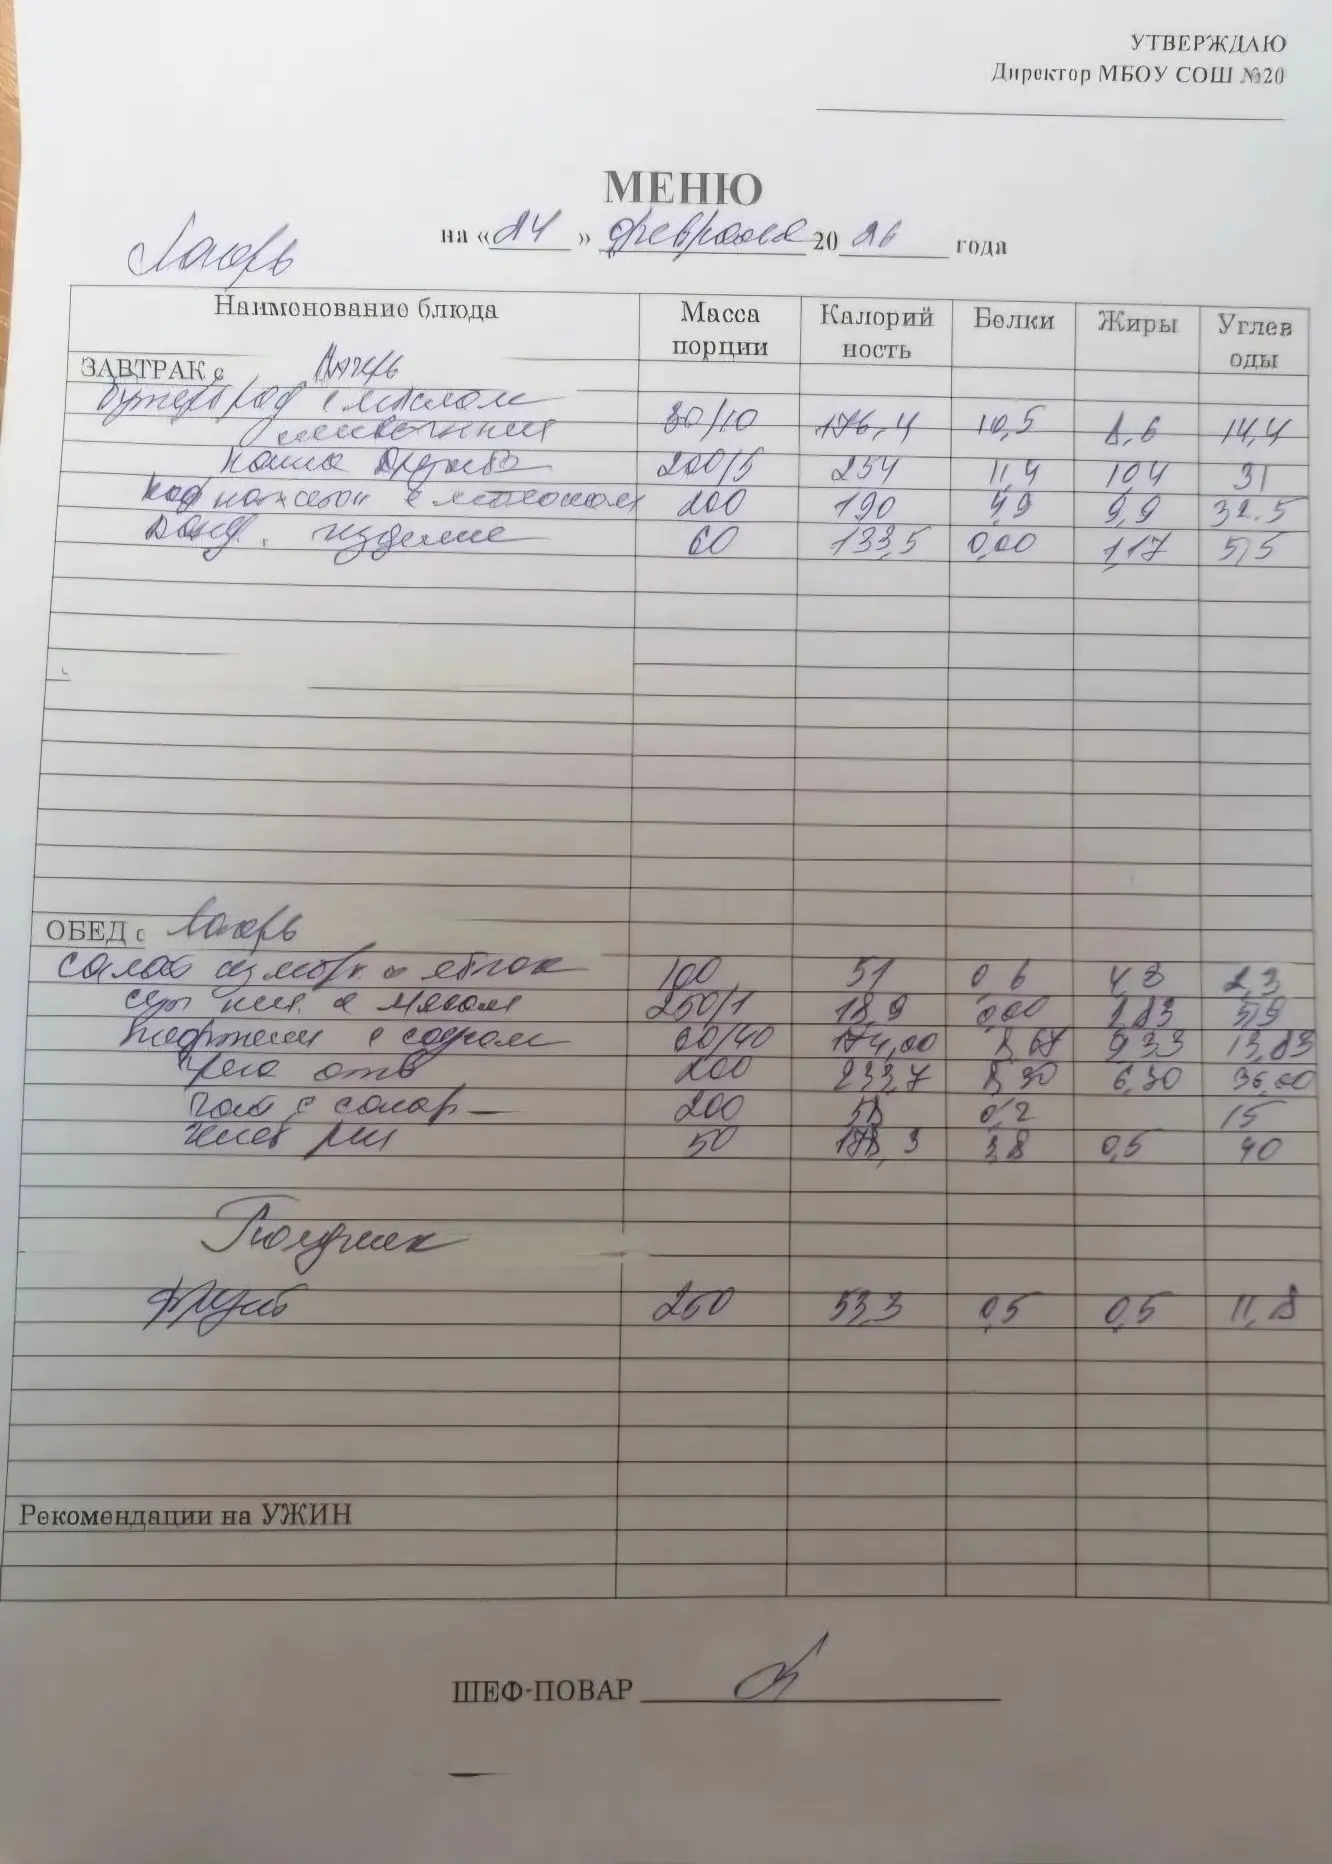 УТВЕРЖДАЮ
Директор МБОУ СОШ №20
МЕНЮ
на «24» февраля 2026 года
Лагерь
Наимонование блюда Масса порции Калорий ность Белки Жиры Углев оды
ЗАВТРАК с Лагерь
Бутерброд с маслом
сливочным 30/10 176,4 10,5 8,6 14,4
Каша Дружба 200/5 254 11,4 10,4 31
Коф напиток с молоком 200 190 4,9 9,9 32.5
Конд. изделие 60 133,5 0,00 1,17 5,5
ОБЕД с Лагерь
Салат из морк и яблок 100 51 0,6 4,8 2,3
суп с мясом 250/1 18,9 0,00 2,83 5,9
с соусом 60/40 174,00 8,67 9,33 13,83
отв 200 233,7 8,30 6,30 36,00
Чай с сахар 200 58 0,2 15
Хлеб рж 50 178,3 3,8 0,5 40
Полдник
Фрукт 250 53,3 0,5 0,5 11,8
Рекомендации на УЖИН
ШЕФ-ПОВАР